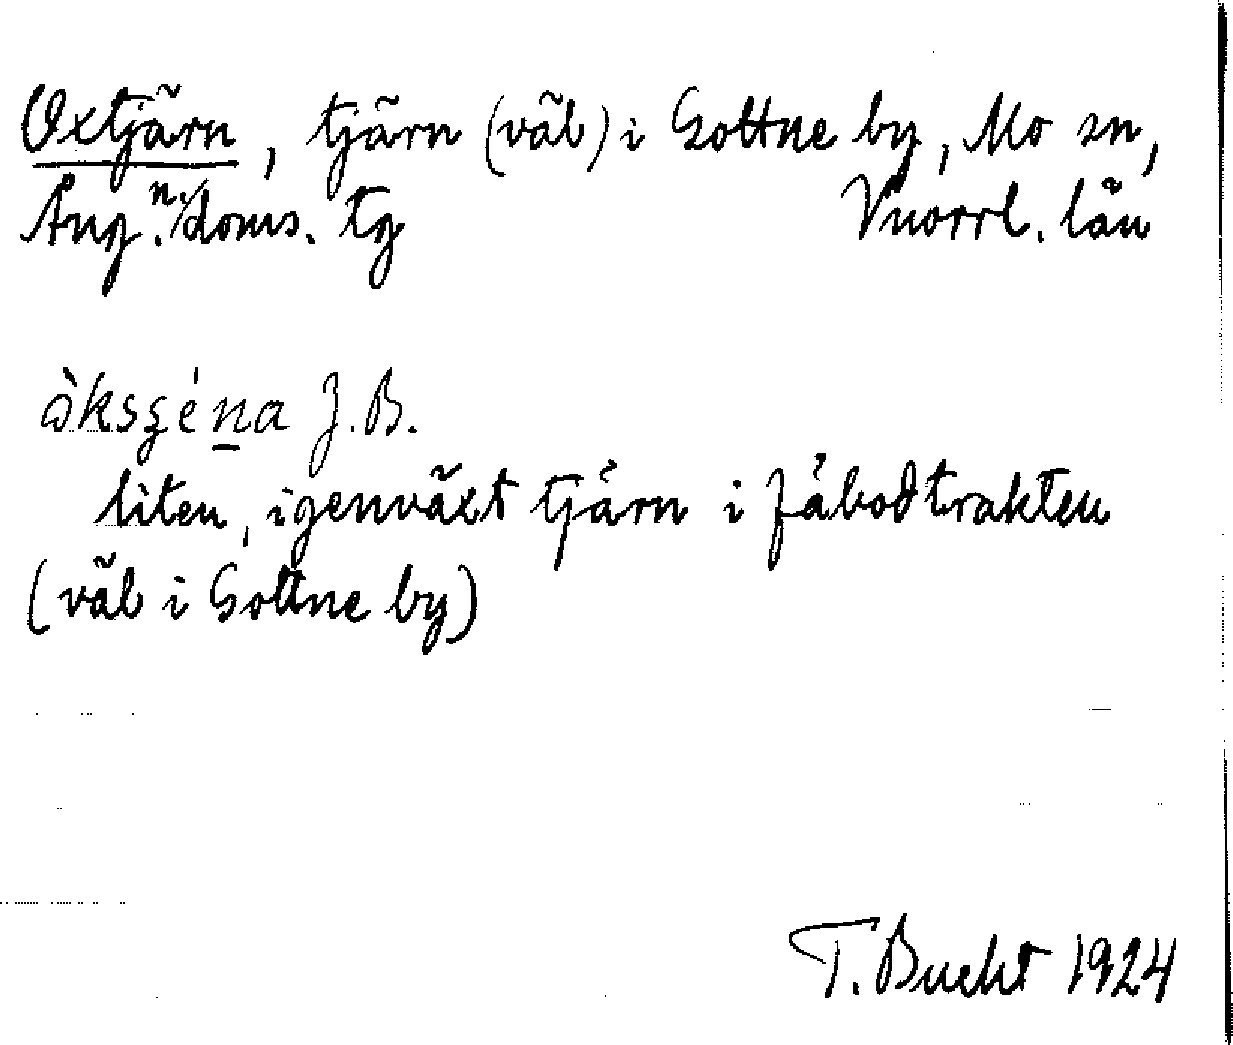 Oxtjärn, tjärn (väb) i Gottne by, Mo sn,
Ång. n. doms. tg Vnorrl. län
J. B.
liten, igenväxt tjärn i fäbodtrakten
(väb i Gottne by)
T. Bucht 1924